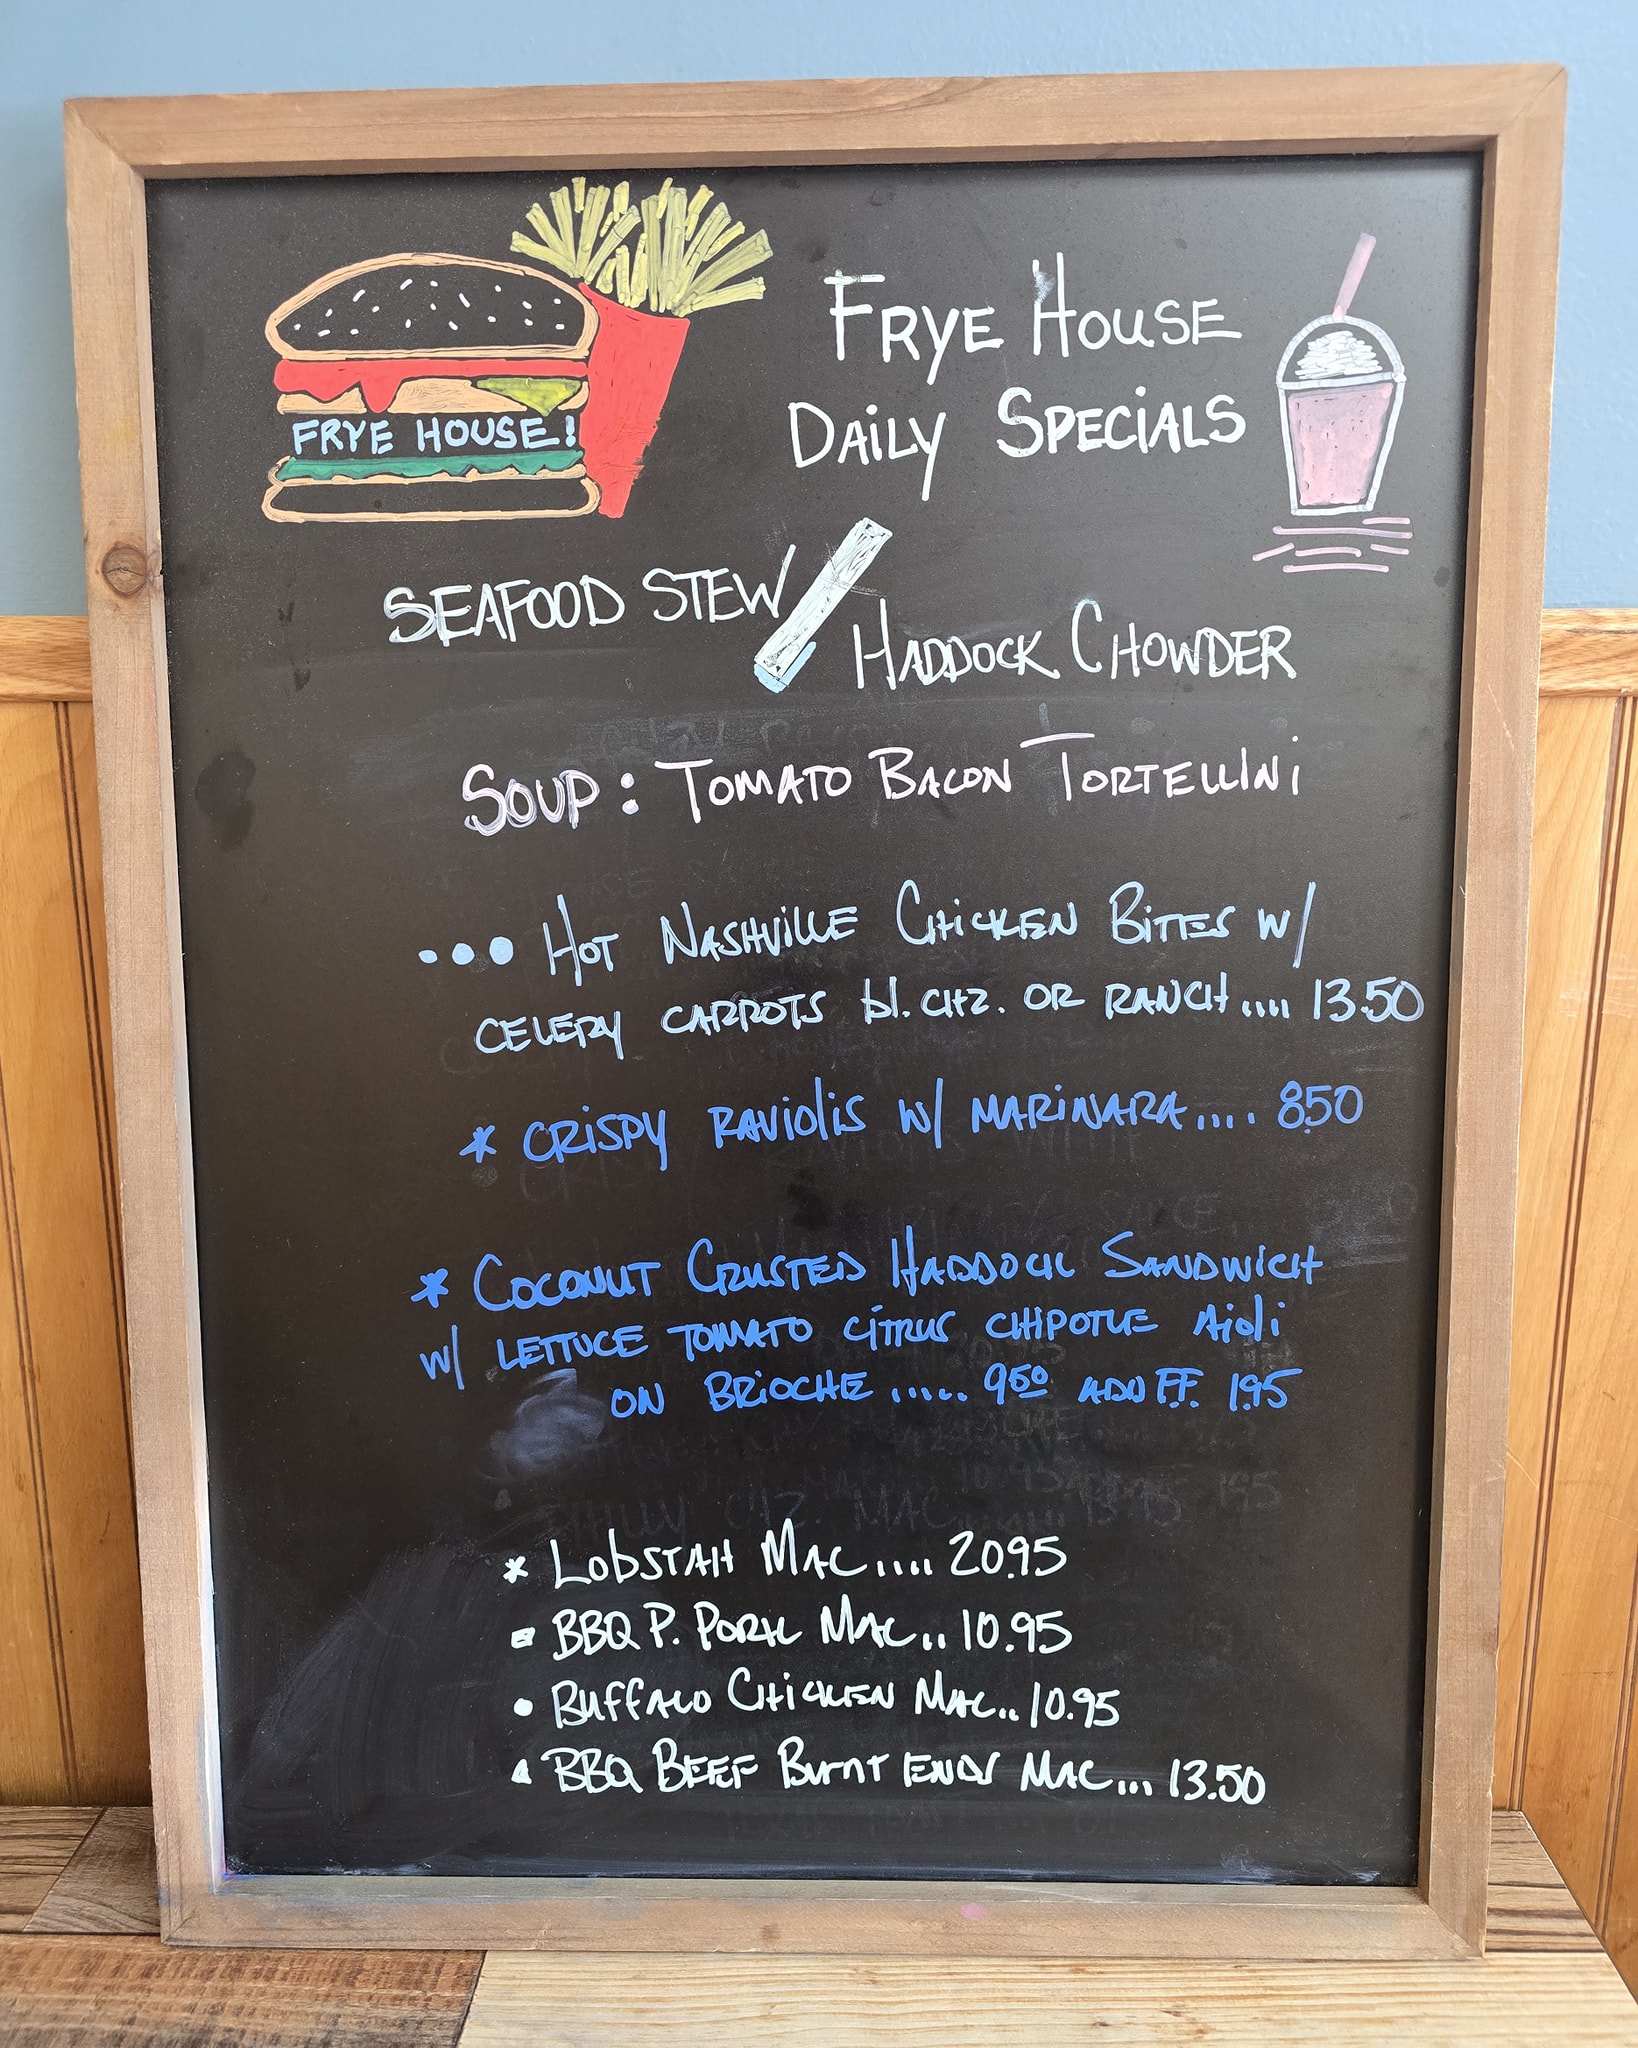 FRYE HOUSE!
FRYE HOUSE
DAiLY SPECiALS
SEAFOOD STEW
HADDOCK CHOWDER
SOUP: TOMATO BACON TORTELLINi
••• HOT NASHViLLE CHiCKEN BiTES w/
CELERY CARROTS bl. CHZ. OR RANCH.... 13.50
* CRiSPY RAViOliS w/ MARiNARA.... 8.50
* COCONUT CRUSTED HADDOCK SANDWiCH
w/ LETTUCE TOMATO CiTRUS CHiPOTLE Aioli
ON BRiOCHE ..... 9.50 ADD F.F. 1.95
* LObSTAH MAC.... 20.95
BBQ P. PORK MAC.. 10.95
• BUFFALO CHiCKEN MAC.. 10.95
BBQ BEEF BURNT ENDS MAC... 13.50